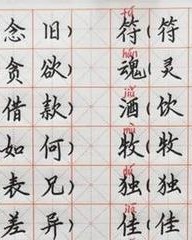 念旧) 符(符
贪欲) 魂(灵
借款) 酒(饮
如何) 牧(牧
表兄) 独(独
差异) 佳(佳